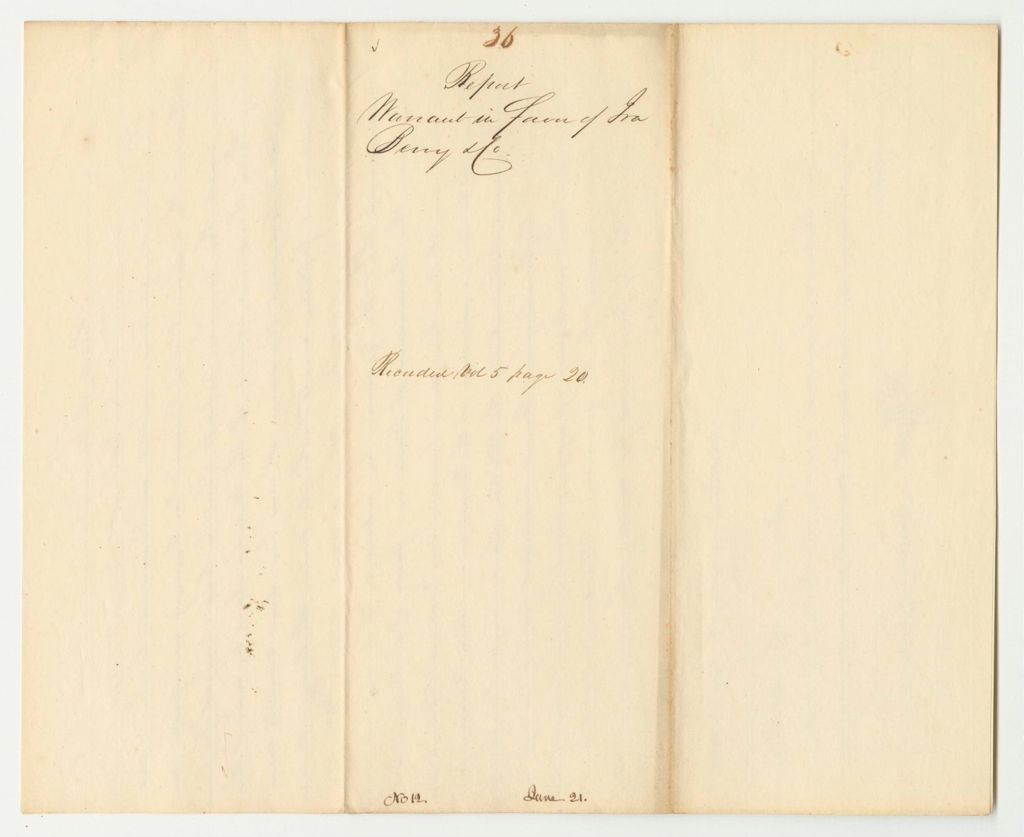 36
Report
Warrant in Favor of Ira
Berry & Co.
Recorded Vol 5 page 20.
No 12. June 21.